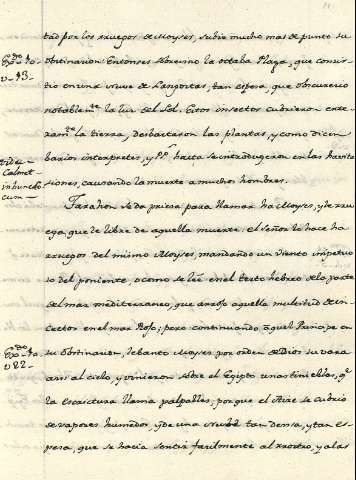 tad por los rruegos de Moyses, subio mucho mas de punto su
obstinacion. Entonses sobrevino la octaba Plaga, que consis-
Exᵈᵒ 10
v 13.
tio en una nuve de Langostas, tan espesa, que obscurecio
notablemᵗᵉ la luz del Sol. Estos insectos cubrieron ente-
ramᵗᵉ la tierra, debastaron las plantas, y como dicen
Vide
Calmet
in hunc lo-
cum
barios interpretes, y PP. hasta se introdugeron en las havita-
siones, causando la muerte a muchos hombres.
Farahon se da priesa para llamar ha Moyses, y le rru-
ega, que le libre de aquella muerte. el Señor lo hace ha
rruegos del mismo Moyses, mandando un viento impetuo
so del poniente, o como se lee en el texto hebreo de la parte
del mar mediterraneo, que arrojo aquella multitud de in-
cectos en el mar Rojo; pero continuando aquel Principe en
Exᵈᵒ 10
v 22
su Obstinacion, lebanto Moyses por orden de Dios su vara
acia el cielo, y vinieron sobre el Egipto unas tinieblas, qᵉ
la escritura llama palpables, por que el Aire se cubrio
de vapores humedos, y de una nuve tan densa, y tan es-
pesa, que se hacia sentir facilmente al rrostro, y a las